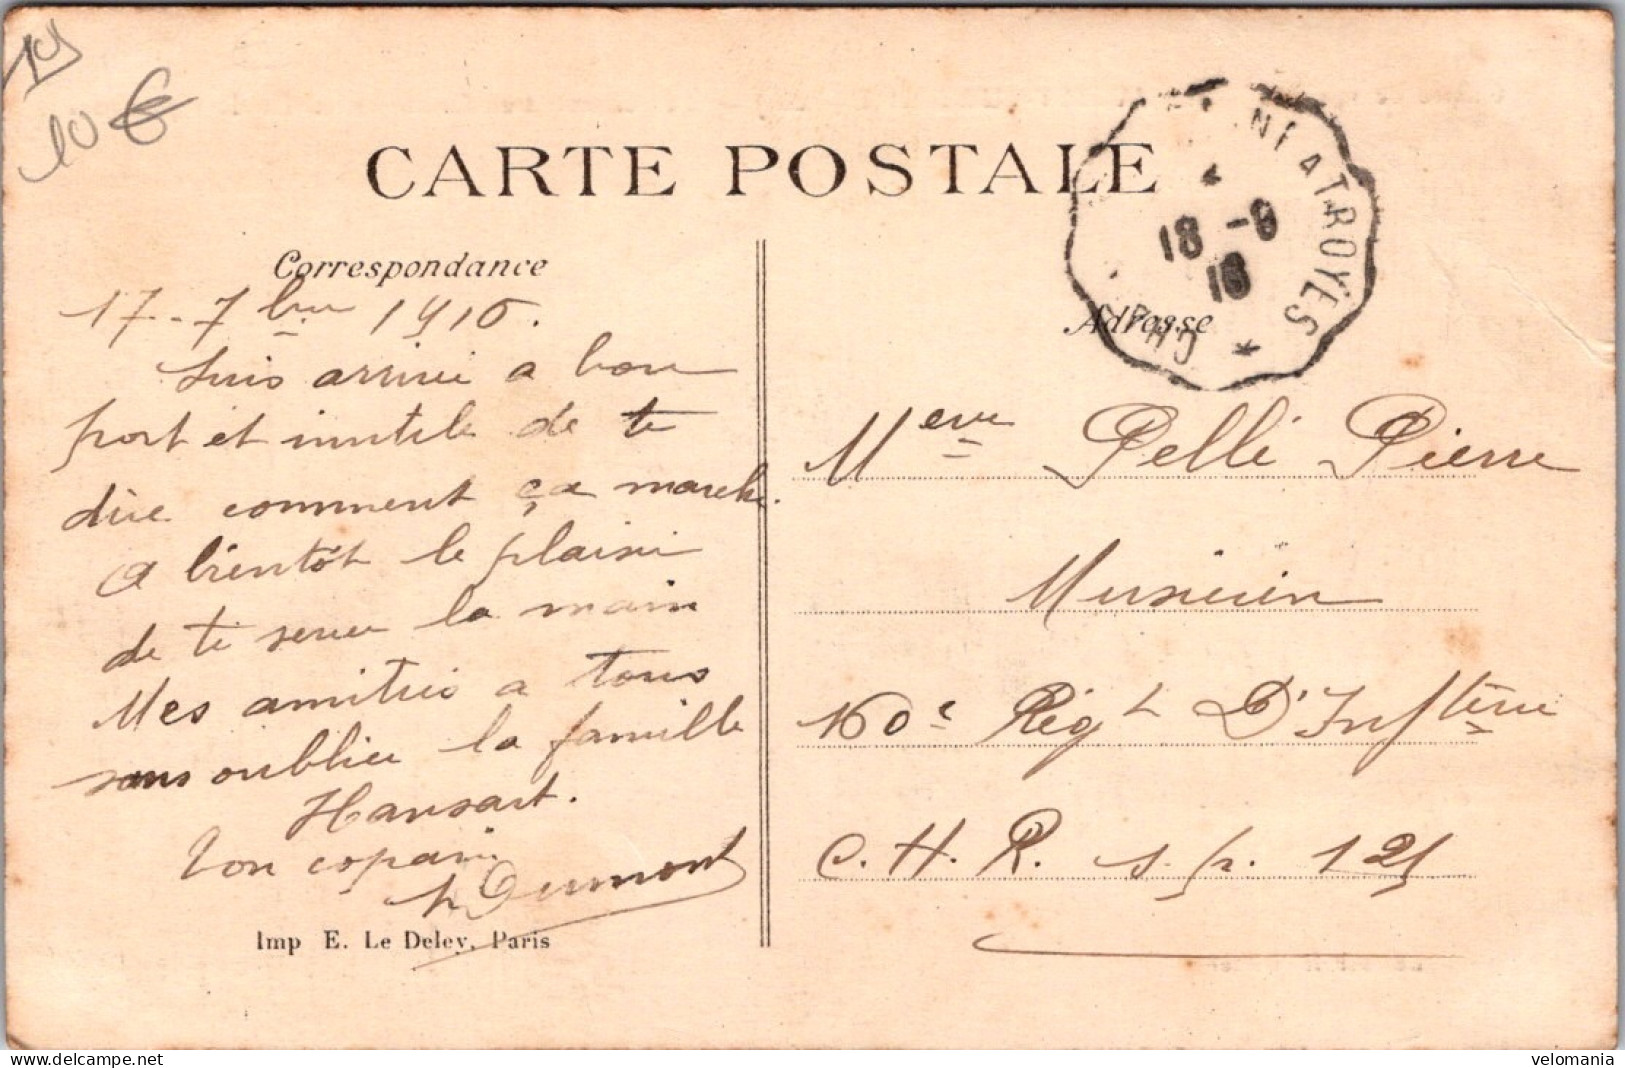 10 €
CARTE POSTALE
NE A TROYES
18 -9
16
Correspondance
Adresse
17 - 7bre 1916.
Suis arrivé a bon
port et inutile de te
dire comment ça marche.
A bientôt le plaisir
de te serrer la main
Mes amitiés a tous
sans oublier la famille
Hansart.
Ton copain
Dumont
Imp E. Le Deley, Paris
Pelli Pierre
Musicien
160e Régt D'Inftérie
C. H. R. s. p. 121
velomania
delcampe.net